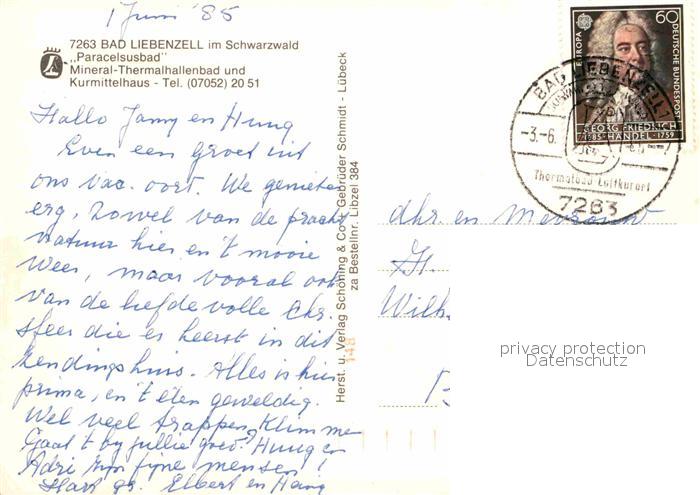 1 Juni '85
7263 BAD LIEBENZELL im Schwarzwald
„Paracelsusbad"
Mineral-Thermalhallenbad und
Kurmittelhaus - Tel. (07052) 20 51
Hallo Janny en Hung
Even een groet uit
ons vac. oort. We genieten
erg, zowel van de pracht
natuur hier en 't mooie
weer, maar vooral ook
van de liefde volle Chr.
sfeer die er heerst in dit
zendingshuis. Alles is hier
prima, en 't eten geweldig.
Wel veel trappen klimmen
Gaat 't by jullie goed? Hung en
Adri zyn fijne mensen!
Hart. gr. Elbert en
Herst. u. Verlag Schöning & Co + Gebrüder Schmidt - Lübeck
za Bestellnr. Libzel 384
148
EUROPA
60
DEUTSCHE BUNDESPOST
GEORG FRIEDRICH
1685 HÄNDEL 1759
BAD LIEBENZELL 1
-3.-6.
Thermalbad Luftkurort
7263
dhr. en Mevrouw
Wilh.
privacy protection
Datenschutz